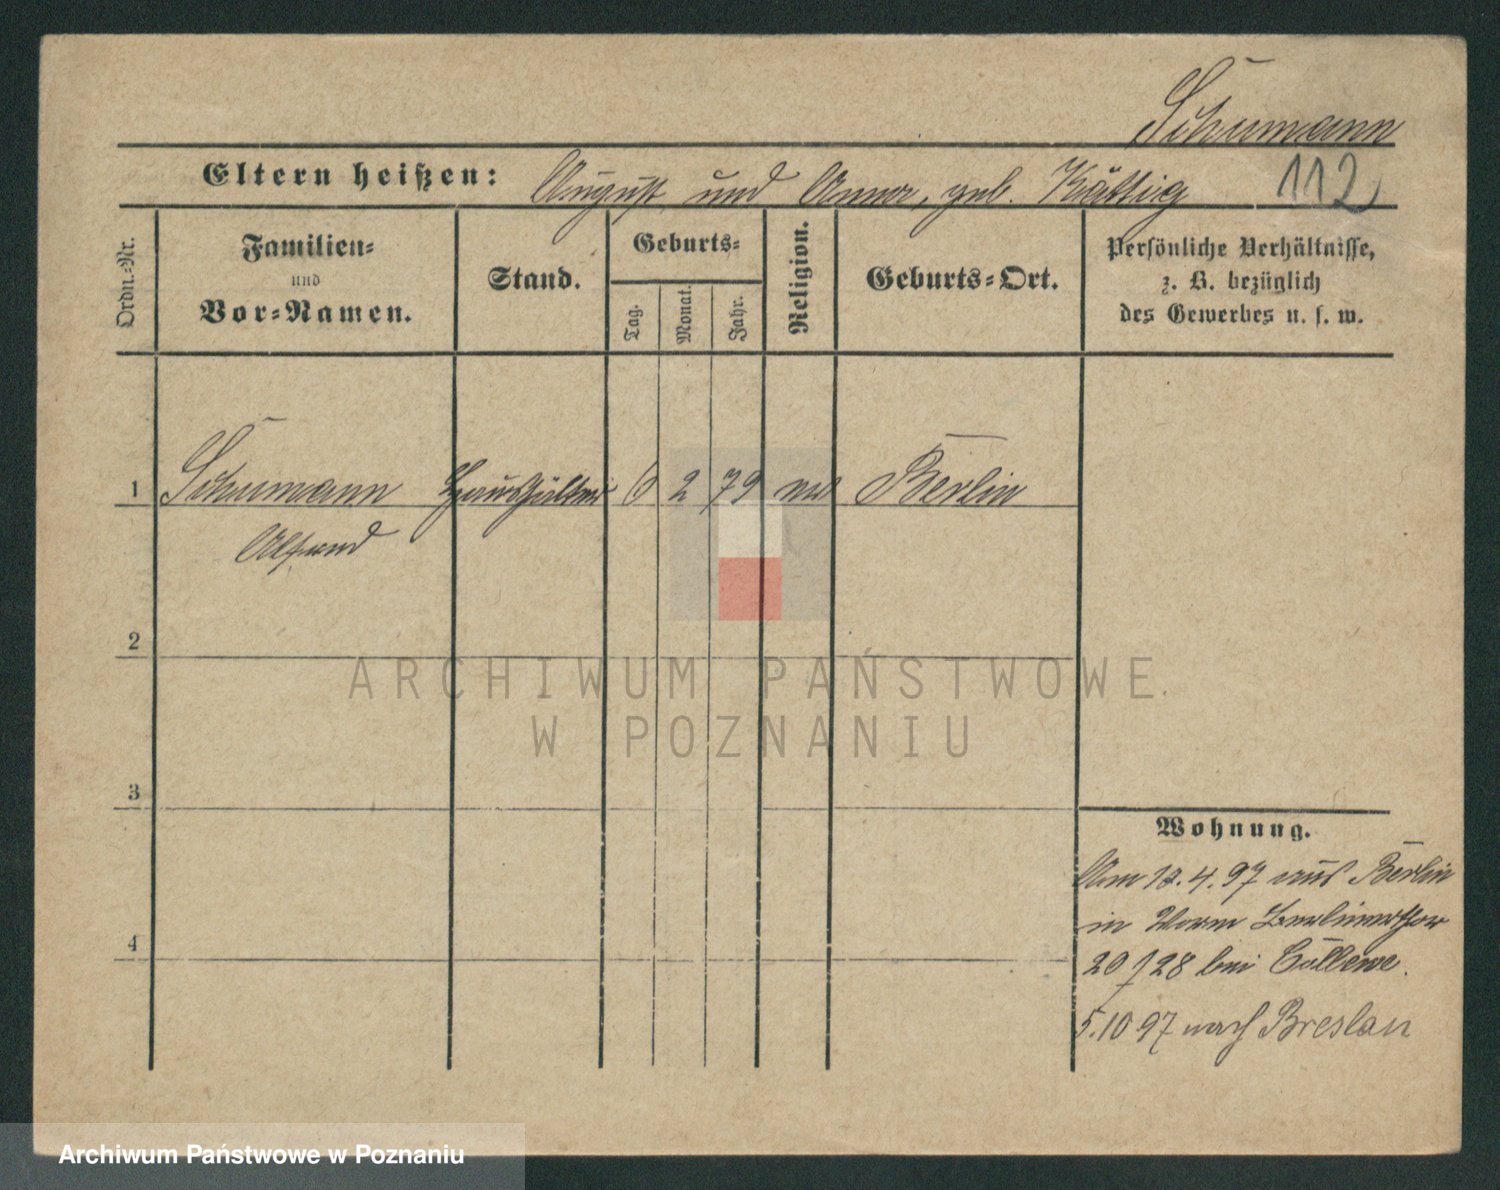 Schumann
Eltern heißen: August und Anna, geb. Kättig 112
Ordn.-Nr.
Familien-
und
Vor-Namen.
Stand.
Geburts-
Tag.
Monat.
Jahr.
Religion.
Geburts-Ort.
Persönliche Verhältnisse,
z. B. bezüglich
des Gewerbes u. s. w.
1 Schumann Haushälter 6 2 79 ev Berlin
Alfred
2
3
4
Wohnung.
Am 12.4.97 aus Berlin
in Berlinerthor
20/28 bei
5.10 97 nach Breslau
ARCHIWUM PAŃSTWOWE
W POZNANIU
Archiwum Państwowe w Poznaniu